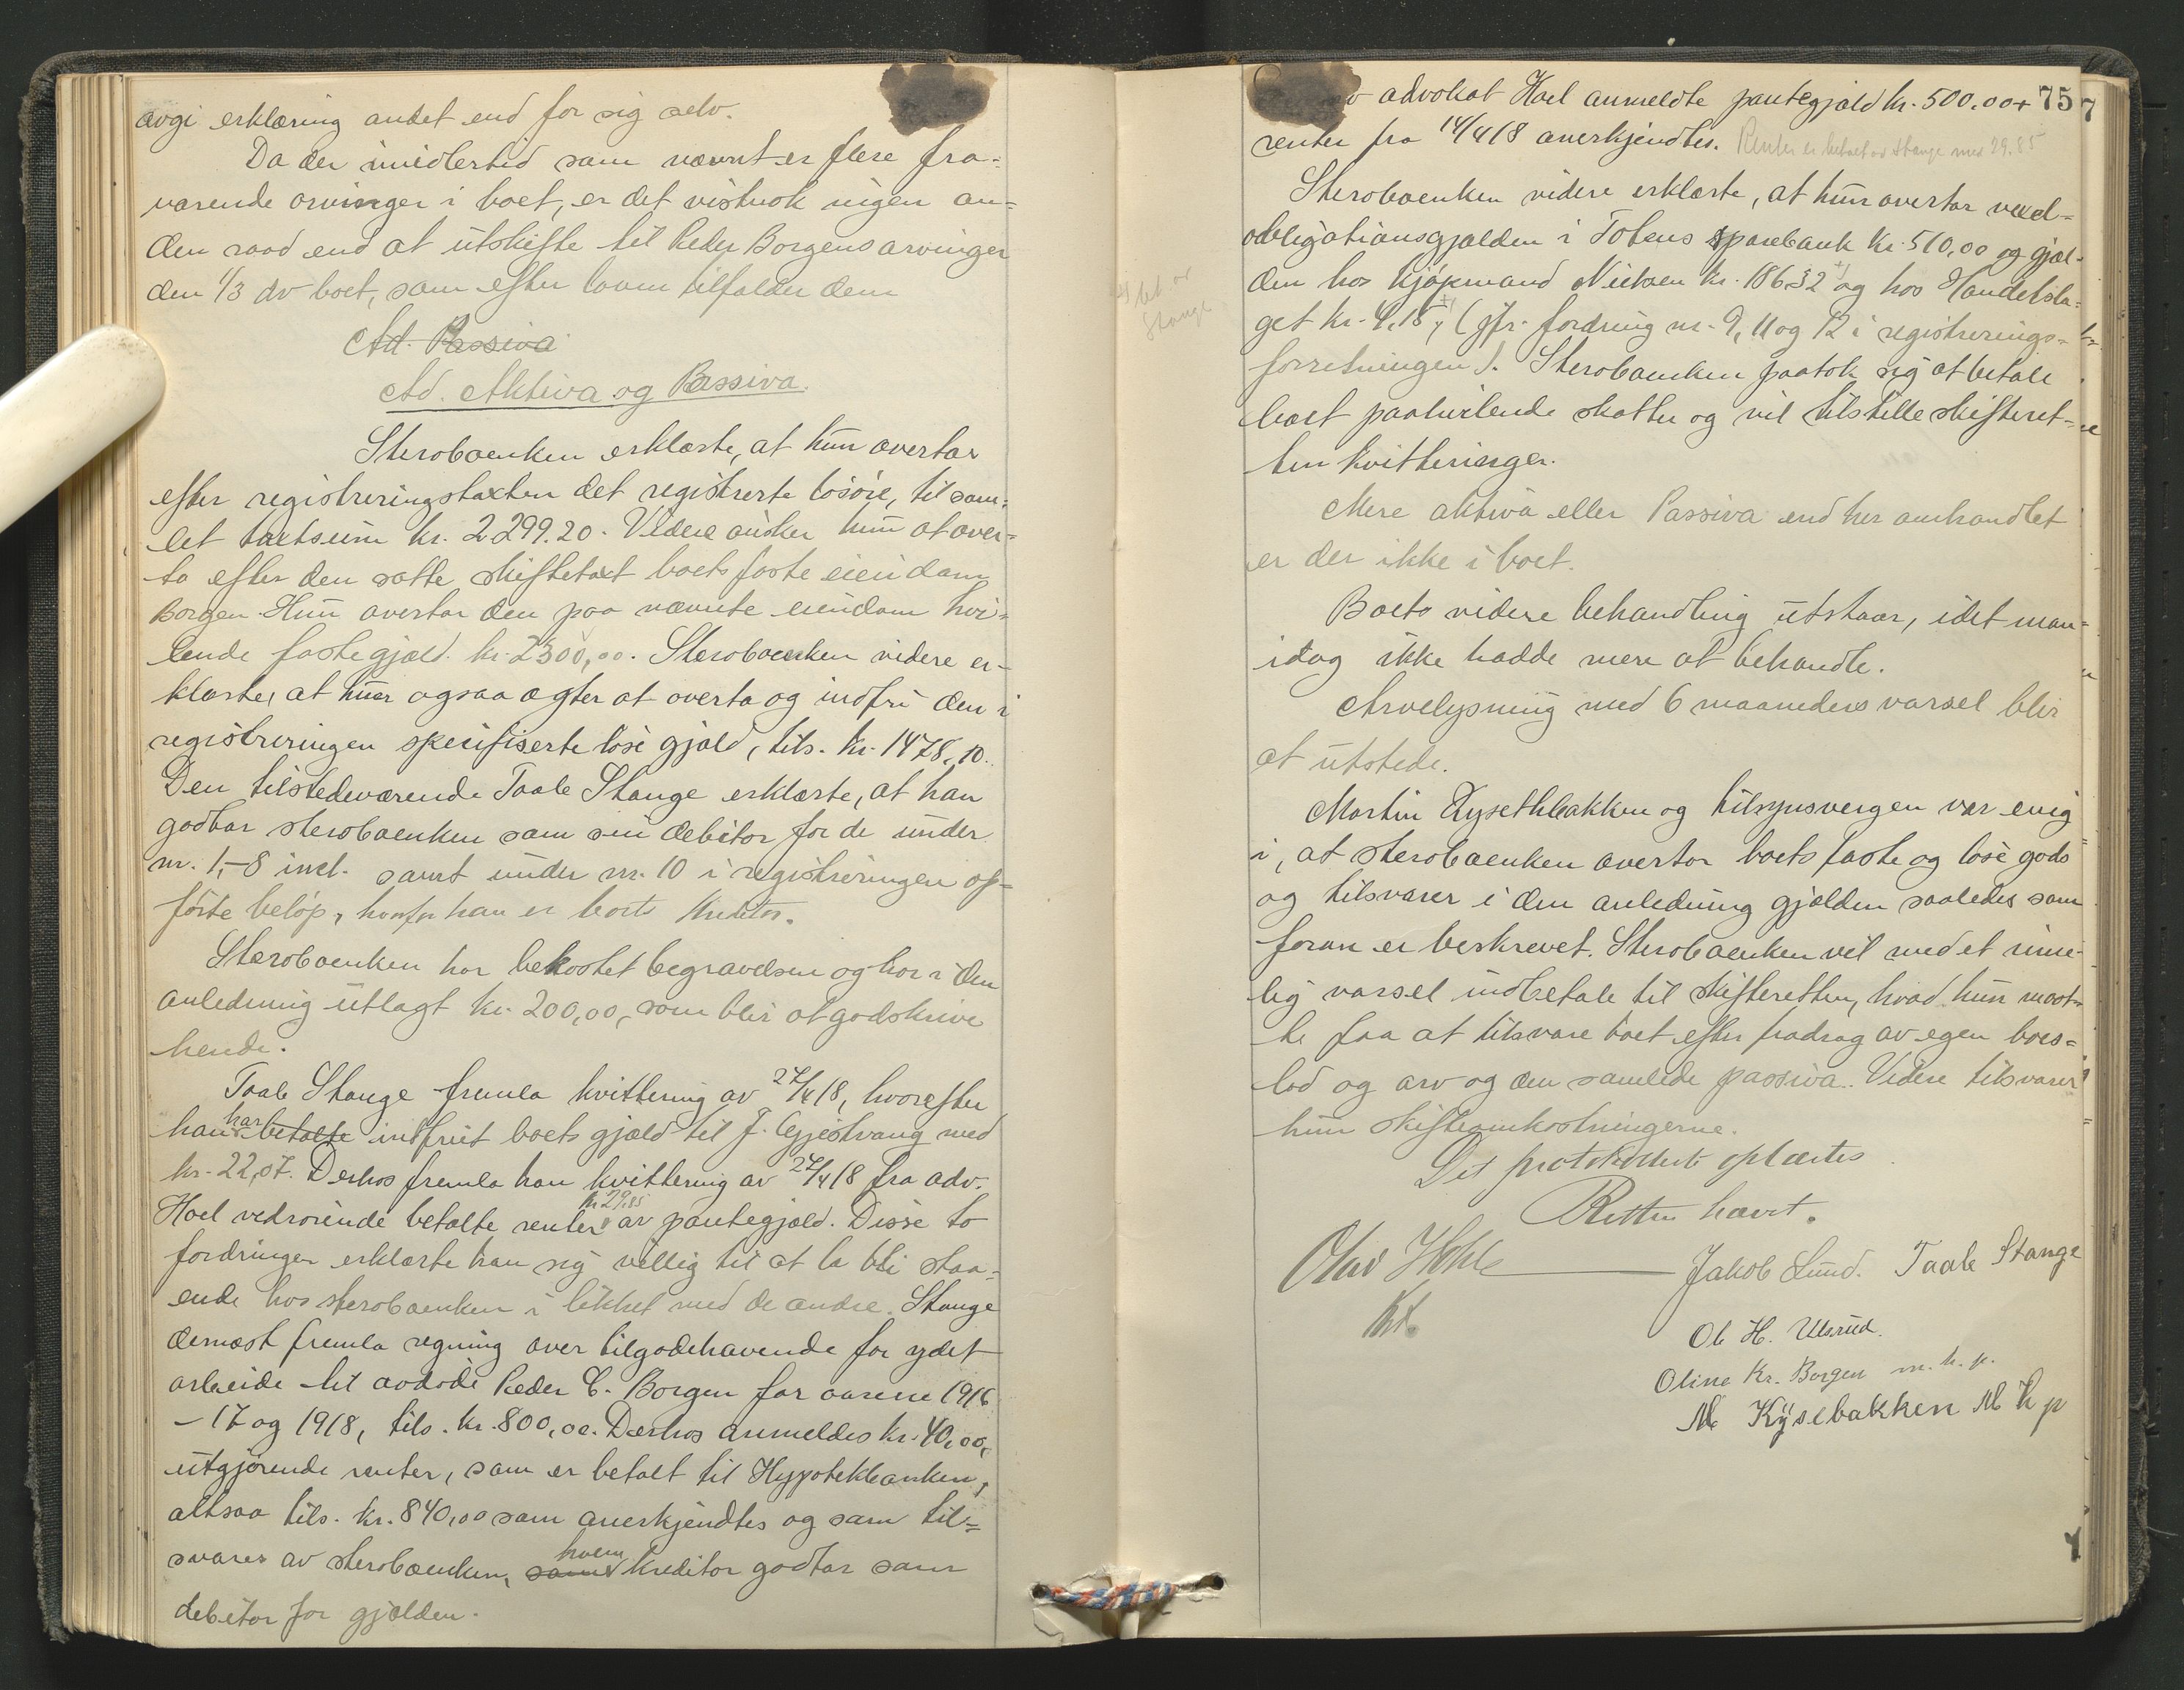 avgi erklæring andet end for sig selv.
Da der imidlertid som nævnt er flere fra-
værende arvinger i boet, er det vistnok ingen an-
den raad end at utskifte til Peder Borgens arvinger
den 1/3 av boet, som efter loven tilfalder dem
Ad. Passiva
Ad. Aktiva og Passiva.
Sterboenken erklærte, at hun overtar
efter registreringstaxten det registrerte løsøre, til sam-
let taxtsum kr. 2299.20. Videre ønsker hun at over-
ta efter den satte skiftetaxt boets faste eiendom
Borgen. Hun overtar den paa nævnte eiendom hvi-
lende faste gjæld kr. 2300,00. Sterboenken videre er-
klærte, at hun ogsaa agter at overta og indfri den i
registreringen spesifiserte løse gjæld, tils. kr. 1478,10.
Den tilstedeværende Taale Stange erklærte, at han
godtar sterboenken som sin debitor for de under
nr. 1-8 incl. samt under nr. 10 i registreringen op-
førte beløp, hvorfor han er boets kreditor.
Sterboenken har bekostet begravelsen og har i den
anledning utlagt kr. 200,00, som blir at godskrive
hende.
Taale Stange fremla kvittering av 27/4 18, hvorefter
han har betalte indfriet boets gjæld til F. Gjestvang med
kr. 22,07. Derhos fremla han kvittering av 27/4 18 fra adv.
Hoel vedrørende betalte renter kr 29,85 av pantegjæld. Disse to
fordringer erklærte han sig villig til at la bli staa-
ende hos sterboenken i likhet med de andre. Stange
dernæst fremla regning over tilgodehavende for ydet
arbeide til avdøde Peder C. Borgen for aarene 1916
-17 og 1918, tils. kr. 800,00. Derhos anmeldes kr. 40,00,
utgjørende renter, som er betalt til Hypotekbanken,
altsaa tils. kr. 840,00 som anerkjendtes og som til-
svares av sterboenken, som hvem kreditor godtar som
debitor for gjælden.
75
av advokat Hoel anmeldte pantegjæld kr. 500,00 +
renter fra 14/4 18 anerkjendtes. Renter er betalt av Stange med 29.85
Sterboenken videre erklærte, at hun overtar vexel-
obligationsgjælden i Totens Sparebank kr. 510,00 og gjæl-
den hos kjøpmand Nielsen kr. 186,32 +) og hos Handelsla-
get kr. 4,15, +) (jfr. fordring nr. 9, 11 og 12 i registrerings-
forretningen). Sterboenken paatok sig at betale
boet paahvilende skatter og vil tilstille skifteret-
ten kvitteringer.
+) bet av
Stange
Mere aktiva eller Passiva end her omhandlet
er der ikke i boet.
Boets videre behandling utstaar, idet man
idag ikke hadde mere at behandle.
Arvelysning med 6 maaneders varsel blir
at utstede.
Martin Kysethbakken og tilsynsvergen var enig
i, at sterboenken overtar boets faste og løse gods
og tilsvarer i den anledning gjælden saaledes som
foran er beskrevet. Sterboenken vil med et rime-
lig varsel indbetale til skifteretten, hvad hun maat-
te faa at tilsvare boet efter fradrag av egen boes-
lod og arv og den samlede passiva. Videre tilsvarer
hun skifteomkostningerne.
Det protokollerte oplæstes
Retten hævet.
Jakob Lund. Taale Stange
Ole H. Ulsrud.
Oline Kr. Borgen m. h. p.
M Kysebakken M h p